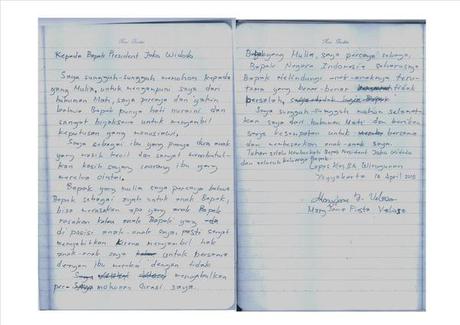 Kepada Bapak President Joko Widodo
Saya sungguh-sungguh memohon kepada
yang Mulia, untuk mengampuni saya dari
hukuman Mati, saya percaya dan yakin
bahwa Bapak punya hati nurani dan
sangat bijaksana untuk mengambil
keputusan yang manusiawi,
Saya sebagai ibu yang punya dua anak
yang masih kecil dan sangat membutuh-
kan kasih sayang seorang ibu yang
mereka cintai.
Bapak yang mulia saya percaya bahwa
Bapak sebagai ayah untuk anak Bapak,
bisa merasakan apa yang anak Bapak
rasakan anak Bapak yang
di posisi anak-anak saya, pasti sangat
menyakitkan karena mengambil hak
anak-anak saya untuk bersama
dengan ibu mereka dengan tidak
mengabulkan
permohonan Grasi saya.
Bapak yang Mulia, saya percaya sebagai
Bapak Negara Indonesia seharusnya
Bapak Melindungi anak-anaknya teru-
tama yang benar-benar tidak
bersalah,
Saya sungguh-sungguh mohon selamat-
kan saya dari hukuman Mati dan berikan
saya kesempatan untuk bersama
dan membesarkan anak-anak saya.
Tuhan selalu Memberkati Bapak Presiden Joko Widodo
dan seluruh keluarga Bapak.
Lapas Klas IIA Wirogunan
Yogyakarta
April 2015
Mary Jane Fiesta Veloso